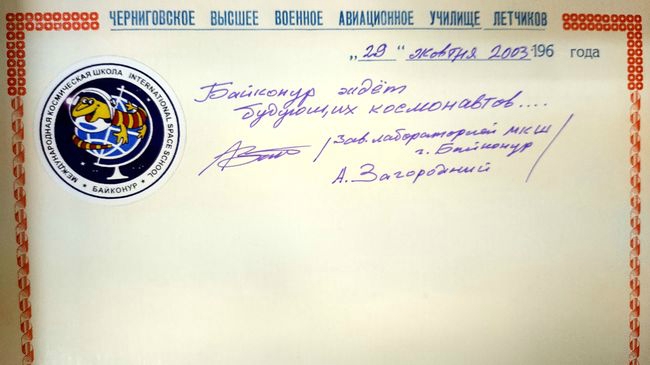 ЧЕРНИГОВСКОЕ ВЫСШЕЕ ВОЕННОЕ АВИАЦИОННОЕ УЧИЛИЩЕ ЛЕТЧИКОВ
„29“ жовтря 2003 196 года
МЕЖДУНАРОДНАЯ КОСМИЧЕСКАЯ ШКОЛА INTERNATIONAL SPACE SCHOOL
* БАЙКОНУР *
Байконур ждёт
будующих космонавтов....
/Зав. лабораторией МКШ
г. Байконур
А. Загородний/